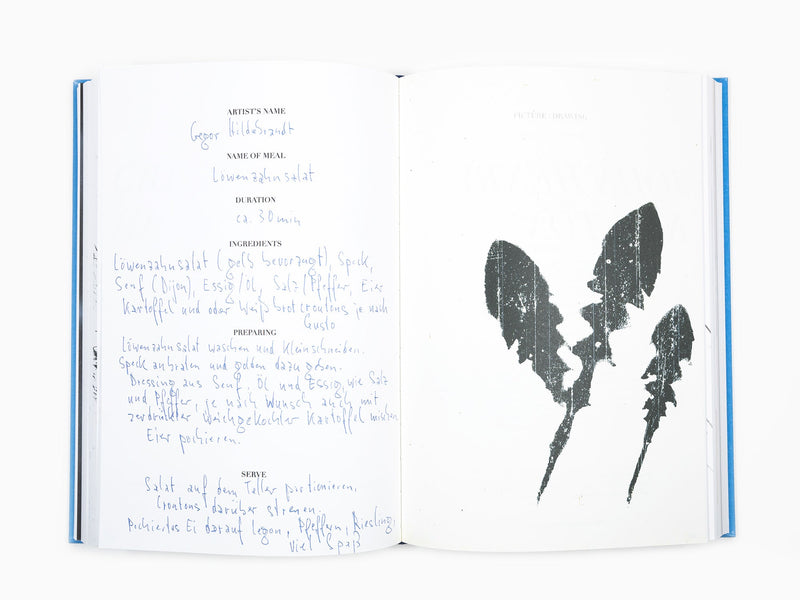 ARTIST'S NAME
Gregor Hildebrandt
NAME OF MEAL
Löwenzahnsalat
DURATION
ca. 30 min
INGREDIENTS
Löwenzahnsalat (gelb bevorzugt), Speck,
Senf (Dijon), Essig/Öl, Salz/Pfeffer, Eier
Kartoffel und oder Weißbrotcroutons je nach
Gusto
PREPARING
Löwenzahnsalat waschen und kleinschneiden.
Speck anbraten und dazu geben.
Dressing aus Senf, Öl und Essig, wie Salz
und Pfeffer, je nach Wunsch auch mit
zerdrückter weichgekochter Kartoffel mischen
Eier pochieren.
SERVE
Salat auf dem Teller portionieren.
Croutons darüber streuen.
Pochiertes Ei darauf legen, Pfeffern, Riesling,
Viel Spaß
PICTURE / DRAWING